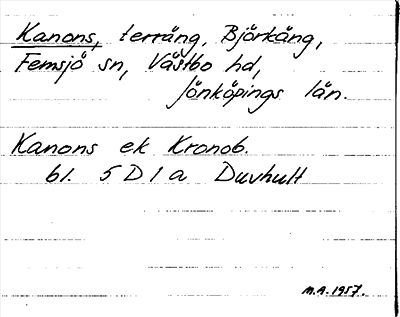 Kanons, terräng, Björkäng,
Femsjö sn, Västbo hd,
Jönköpings län.
Kanons ek Kronob.
bl. 5 D 1 a Duvhult
M.A. 1957.